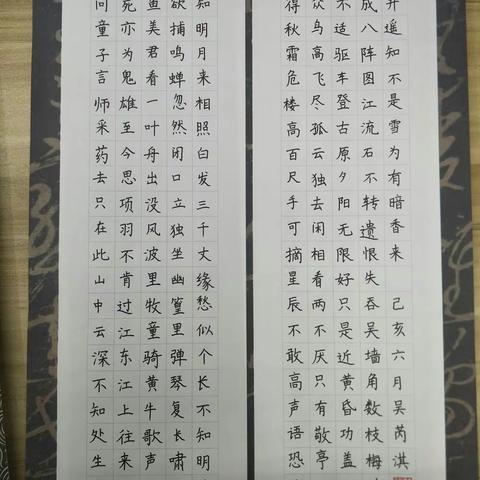 开遥知不是雪为有暗香来 己亥六月吴芮淇
成八阵图江流石不转遗恨失吞吴墙角数枝梅
不适驱车登古原夕阳无限好只是近黄昏功盖
众鸟高飞尽孤云独去闲相看两不厌只有敬亭
得秋霜危楼高百尺手可摘星辰不敢高声语恐
知明月来相照白发三千丈缘愁似个长不知明
欲捕鸣蝉忽然闭口立独坐幽篁里弹琴复长啸
鱼美君看一叶舟出没风波里牧童骑黄牛歌声
死亦为鬼雄至今思项羽不肯过江东江上往来
问童子言师采药去只在此山中云深不知处生